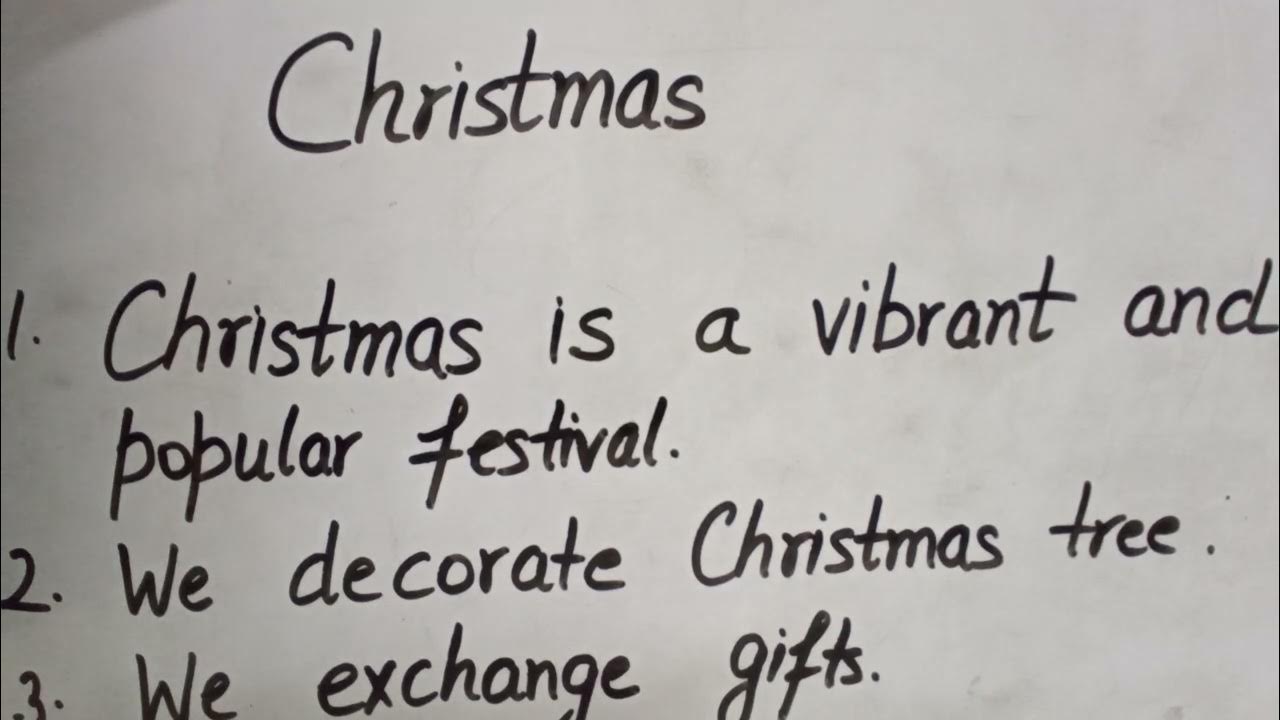 Christmas
1. Christmas is a vibrant and
popular festival.
2. We decorate Christmas tree.
3. We exchange gifts.